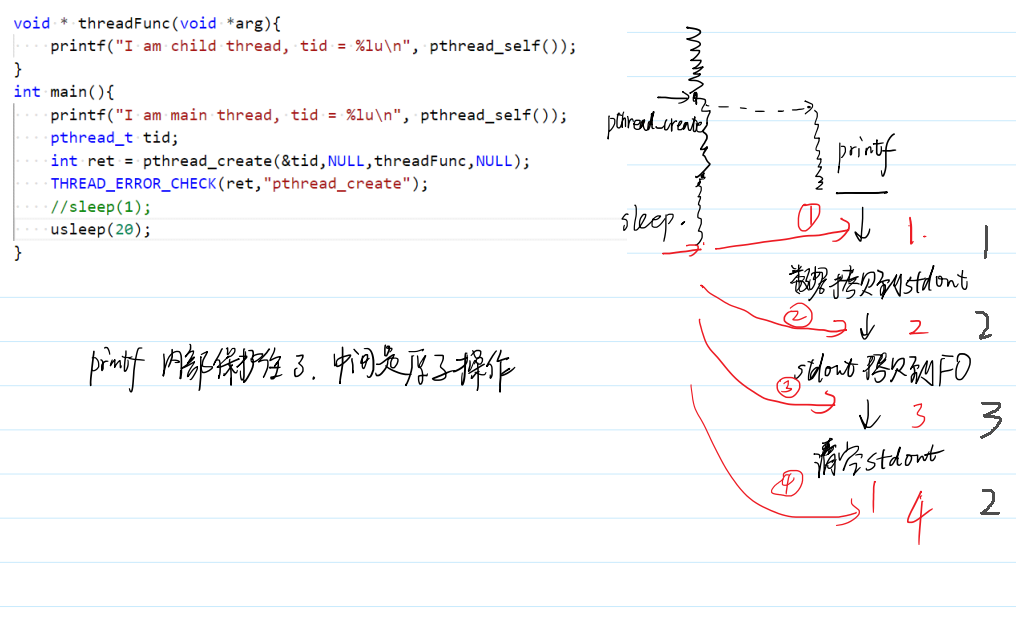 void * threadFunc(void *arg){
    printf("I am child thread, tid = %lu\n", pthread_self());
}
int main(){
    printf("I am main thread, tid = %lu\n", pthread_self());
    pthread_t tid;
    int ret = pthread_create(&tid,NULL,threadFunc,NULL);
    THREAD_ERROR_CHECK(ret,"pthread_create");
    //sleep(1);
    usleep(20);
}
pthread_create
printf
sleep.
① 1. 1
数据拷贝到stdout
② 2 2
stdout拷贝到FO
③ 3 3
清空stdout
④ 4 2
printf 内部保护住了. 中间是原子操作